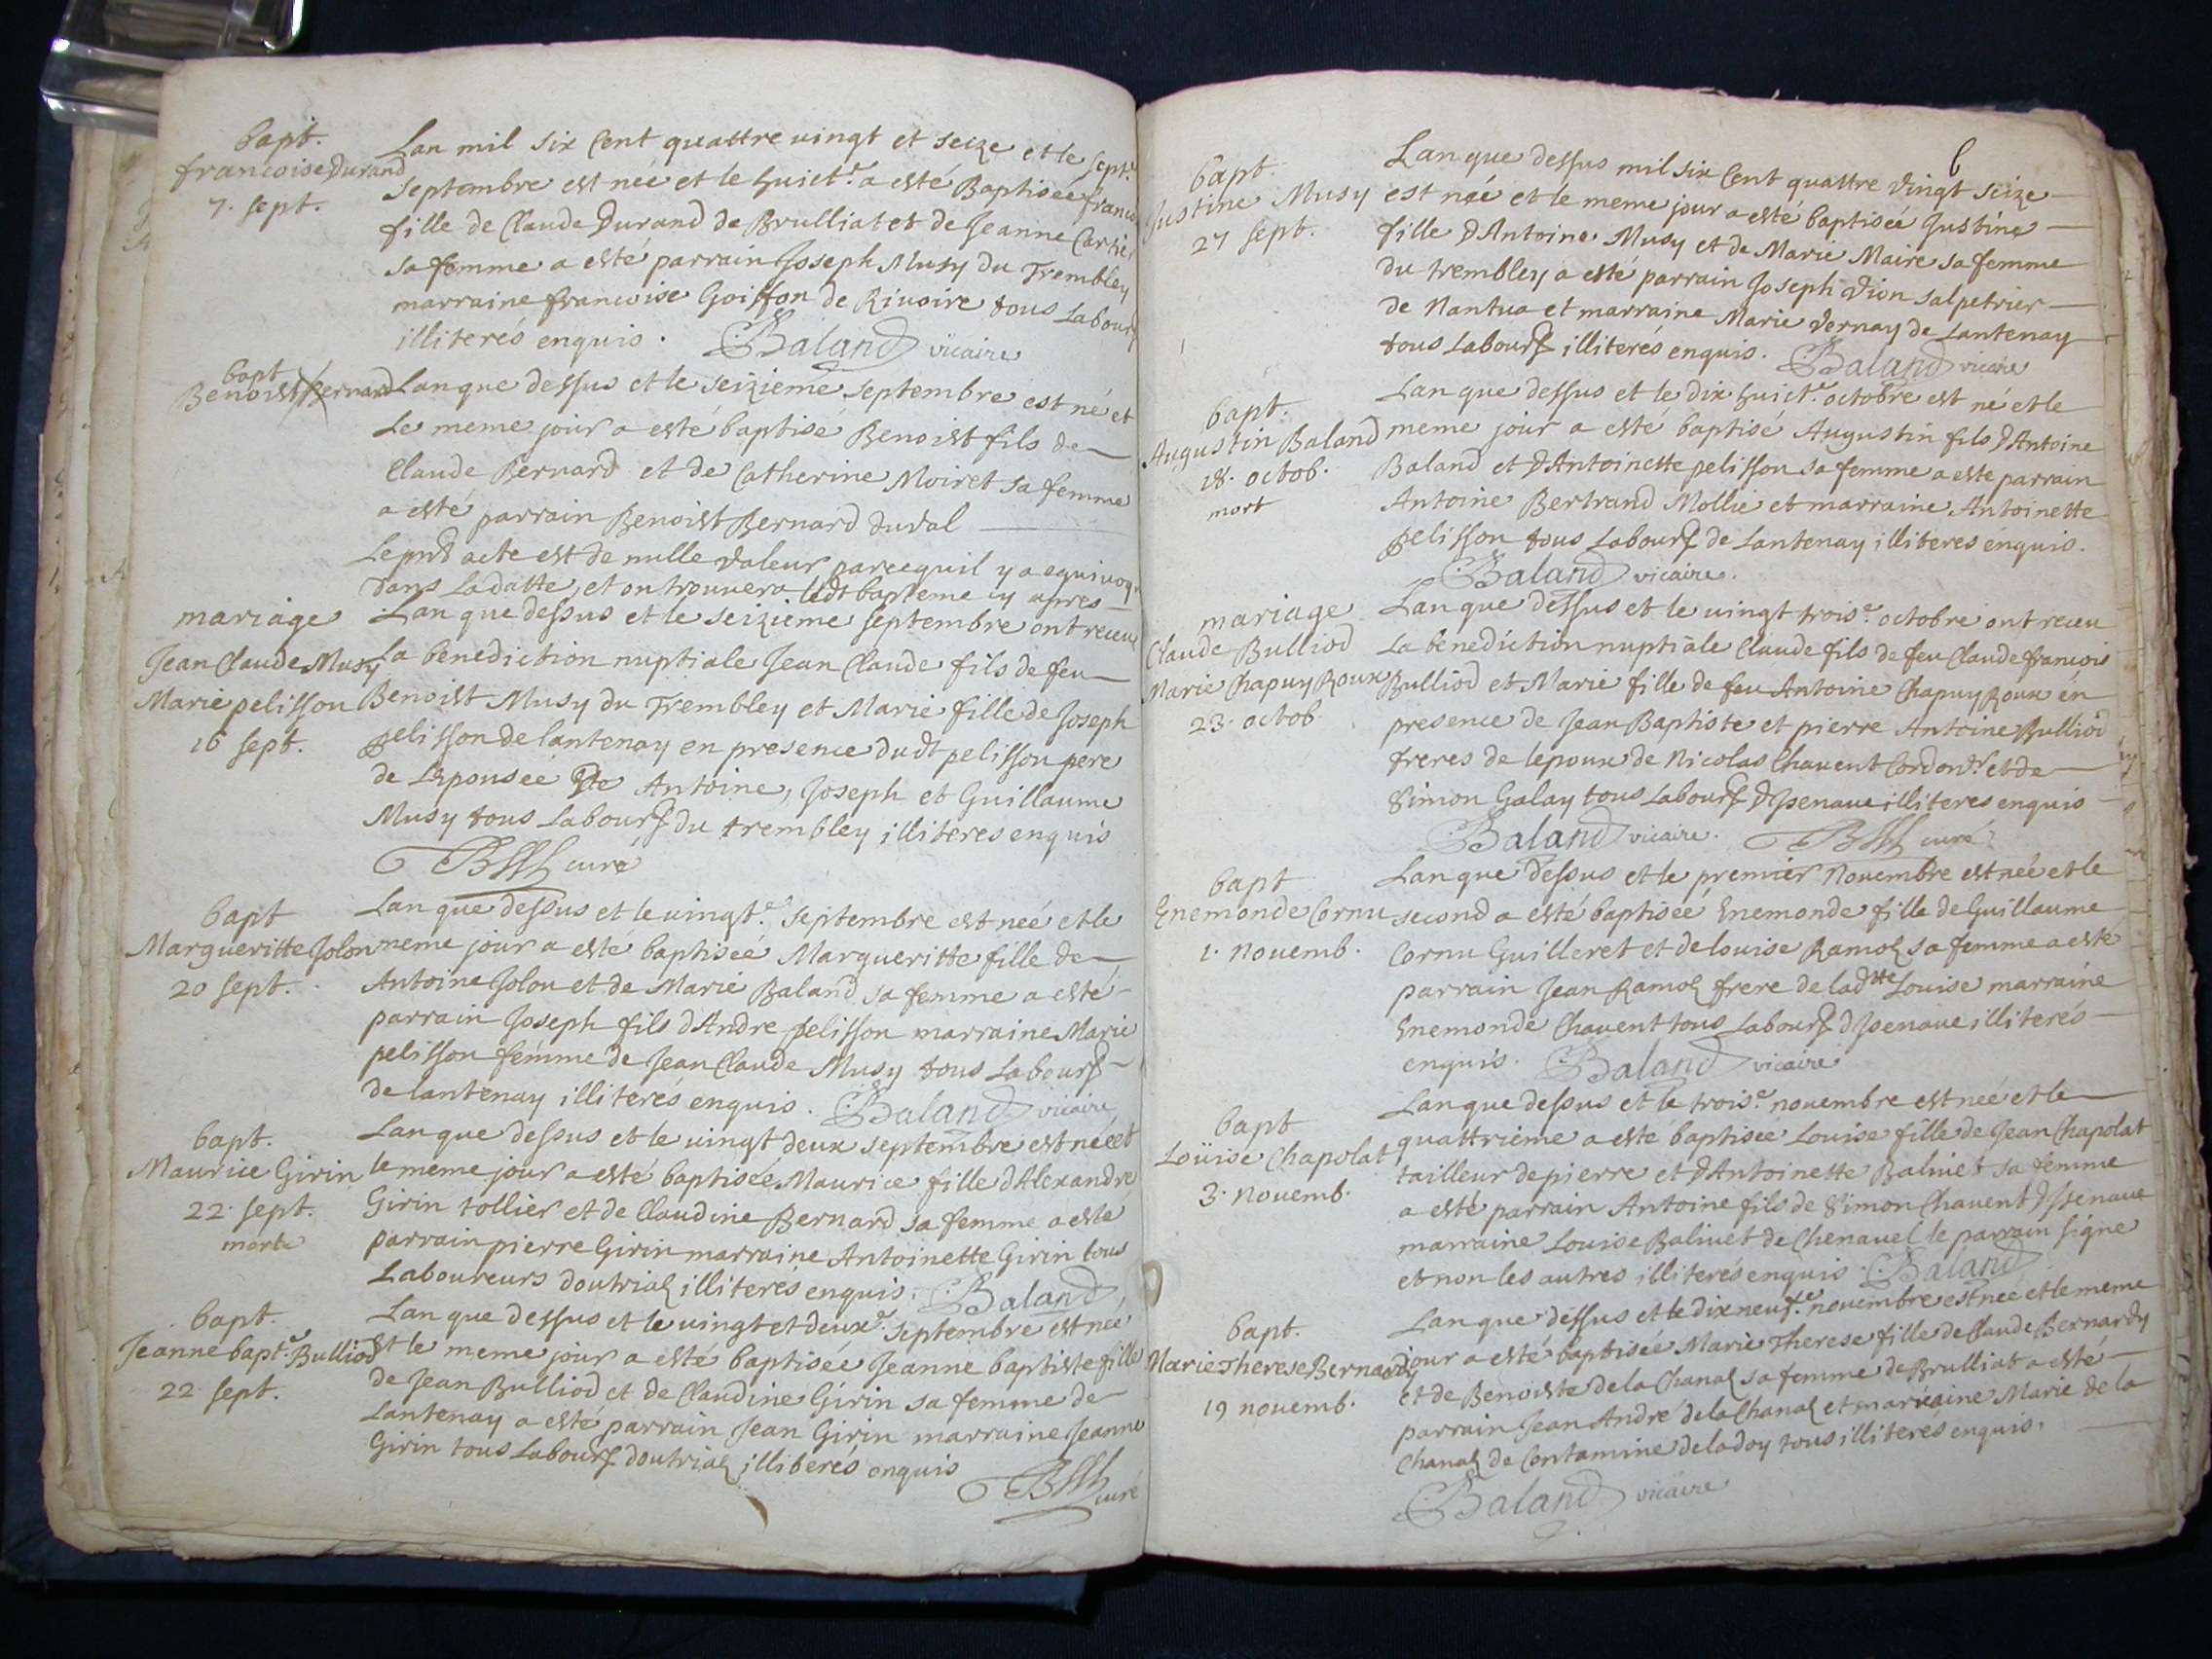 bapt.
francoise Durand
7. sept.
Lan mil six cent quattre vingt et seize et le sept.e
septembre est née et le huict.e a esté Baptisée francoi
fille de Claude Durand de Brulliat et de Jeanne Carrier
sa femme a esté parrain Joseph Musy du Trembley
marraine francoise Goiffon de Rivoire tous Labours
illiterés enquis. Baland vicaire
bapt
Benoist Bernard
Lan que dessus et le seizieme septembre est né et
Le meme jour a esté baptisé Benoist fils de
Claude Bernard et de Catherine Moiret sa femme
a esté parrain Benoist Bernard duval
Le pnt acte est de nulle valeur parcequil y a equivoq
dans la datte, et on trouvera ledt bapteme cy apres
mariage
Jean Claude Musy
Marie pelisson
16 sept.
Lan que dessus et le seizieme septembre ont receu
La benediction nuptiale Jean Claude fils de feu
Benoist Musy du Trembley et Marie fille de Joseph
pelisson de lantenay en presence dudt pelisson pere
de Lepousée de Antoine, Joseph et Guillaume
Musy tous Labours du trembley illiteres enquis
curé
bapt
Margueritte Jolon
20 sept.
Lan que dessus et le vingt.e septembre est née et le
meme jour a esté baptisée Margueritte fille de
Antoine Jolon et de Marie Baland sa femme a esté
parrain Joseph fils dAndre pelisson marraine Marie
pelisson femme de Jean Claude Musy tous Labours
de lantenay illiterés enquis. Baland vicaire
bapt.
Maurice Girin
22. sept.
morte
Lan que dessus et le vingt deux septembre est née et
le meme jour a esté baptisée Maurice fille dAlexandre
Girin tollier et de Claudine Bernard sa femme a esté
parrain pierre Girin marraine Antoinette Girin tous
Laboureurs doutriaz illiterés enquis. Baland
bapt.
Jeanne bapt.e Bulliod
22 sept.
Lan que dessus et le vingt et deux.e septembre est née
et le meme jour a esté baptisée Jeanne baptiste fille
de Jean Bulliod et de Claudine Girin sa femme de
Lantenay a esté parrain Jean Girin marraine Jeanne
Girin tous Labours doutriaz illiterés enquis
curé
6
bapt.
Justine Musy
27 sept.
Lan que dessus mil six cent quattre vingt seize
est née et le meme jour a esté baptisée Justine
fille dAntoine Musy et de Marie Maire sa femme
du trembley a esté parrain Joseph Dion salpetrier
de Nantua et marraine Marie Vernay de Lantenay
tous Labours illiterés enquis. Baland vicaire
bapt.
Augustin Baland
18. octob.
mort
Lan que dessus et le dix huict.e octobre est né et le
meme jour a esté baptisé Augustin fils dAntoine
Baland et dAntoinette pelisson sa femme a esté parrain
Antoine Bertrand Mollie et marraine Antoinette
pelisson tous Labours de Lantenay illiteres enquis.
Baland vicaire.
mariage
Claude Bulliod
Marie Chapuy Roux
23. octob.
Lan que dessus et le vingt trois.e octobre ont receu
La benediction nuptiale Claude fils de feu Claude francois
Bulliod et Marie fille de feu Antoine Chapuy Roux en
presence de Jean Baptiste et pierre Antoine Bulliod
freres de lepoux de Nicolas Chavent Cordon.r et de
Simon Galay tous Labours dIsenave illiteres enquis
Baland vicaire. curé
bapt
Enemonde Cornu
1. novemb.
Lan que dessus et le premier Novembre est née et le
second a esté baptisée Enemonde fille de Guillaume
Cornu Guilleret et de louise Ramoz sa femme a esté
parrain Jean Ramoz frere de ladtte Louise marraine
Enemonde Chavent tous Labours dIsenave illiterés
enquis. Baland vicaire
bapt
Loüise Chapolat
3. novemb.
Lan que dessus et le trois.e novembre est née et le
quattrieme a esté baptisée Louise fille de Jean Chapolat
tailleur de pierre et dAntoinette Balivet sa femme
a esté parrain Antoine fils de Simon Chavent dIsenave
marraine Louise Balivet de Chenavel le parrain signe
et non les autres illiterés enquis. Baland
bapt.
Marie Therese Bernardy
19 novemb.
Lan que dessus et le dix neuf.e novembre est née et le meme
jour a esté baptisée Marie Therese fille de Claude Bernardy
et de Benoiste de la Chanaz sa femme de Brulliat a esté
parrain Jean André de la Chanaz et marraine Marie de la
Chanaz de Contamine de ladoy tous illiterés enquis.
Baland vicaire